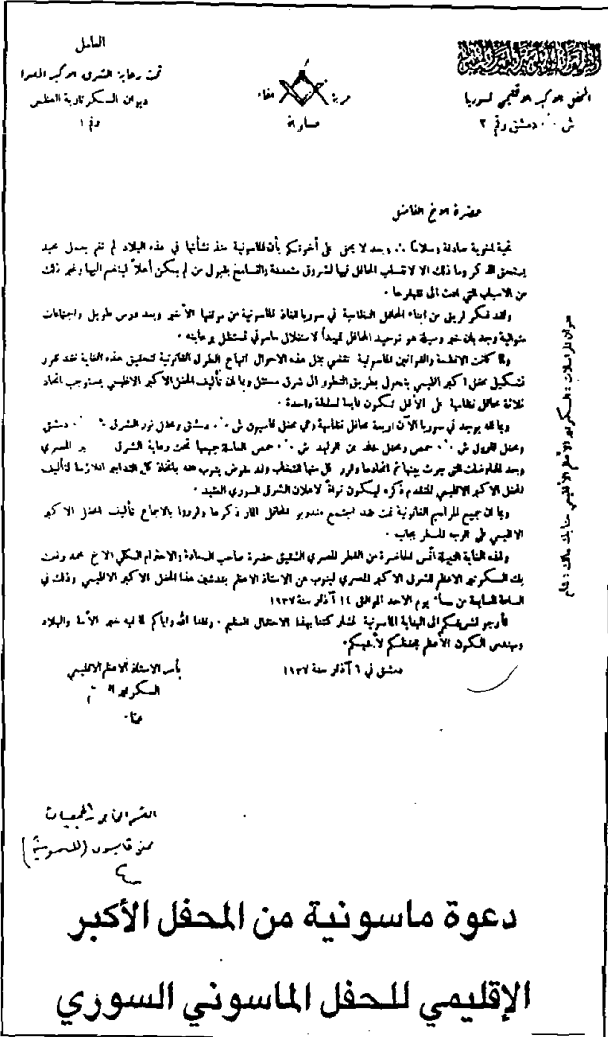 العامل
تحت رعاية الشرق الاكبر المصر
ديوان السكرتارية العظمى
رقم ١
حرية اخاء
مساواة
المحفل الاكبر الاقليمي لسوريا
ش ∴ دمشق رقم ٢
حضرة الاخ الفاضل
تحية ماسونية صادقة وسلامًا ∴ وبعد لا يخفى على أخوتكم بأن الماسونية منذ نشأتها في هذه البلاد لم تقم بعمل مجيد
يستحق الذكر وما ذلك الا لانتساب المحافل فيها لشروق متعددة والتسامح بقبول من لم يكن أهلاً لينضم اليها وغير ذلك
من الاسباب التي أدت الى تقهقرها ٠
ولقد فكر فريق من ابناء المحافل النظامية في سوريا انقاذ الماسونية من موقفها الأخير وبعد درس طويل واجتماعات
متوالية وجد بأن خير وسيلة هو توحيد المحافل تمهيداً لاستقلال ماسوني تستظل برعايته ٠
ولما كانت الانظمة والقوانين الماسونية تقضي بمثل هذه الاحوال انتهاج الطرق القانونية لتحقيق هذه الغاية فقد تقرر
تشكيل محفل اكبر اقليمي يتحول بطريق التطور الى شرق مستقل وبما ان تأليف المحفل الاكبر الاقليمي يستوجب اتحاد
ثلاثة محافل نظامية على الأقل تكون تابعة لسلطة واحدة ٠
وبما انه يوجد في سوريا الآن اربعة محافل نظامية وهي محفل قاسيون ش ∴ دمشق ومحفل نور الشرق ∴ دمشق
ومحفل ش ∴ حمص ومحفل خالد بن الوليد ش ∴ حمص العاملة جميعها تحت رعاية الشرق بر المصري
وبعد المفاوضات التي جرت بينها تم اتحادها وقرر كل منها انتخاب وفد مفوض ينوب عنه باتخاذ كل التدابير اللازمة لتأليف
المحفل الاكبر الاقليمي المتقدم ذكره ليكون نواة لاعلان الشرق السوري العتيد ٠
وبما ان جميع المراسيم القانونية تمت فقد اجتمع مندوبو المحافل المار ذكرها وقرروا بالاجماع تأليف المحفل الاكبر
الاقليمي على الوجه المسطر بجانبه ٠
ولهذه الغاية النبيلة أمّ الحاضرة من القطر المصري الشقيق حضرة صاحب السعادة والاحترام الكلي الاخ محمد رفعت
بك السكرتير الاعظم للشرق الاكبر المصري لينوب عن الاستاذ الاعظم بتدشين هذا المحفل الاكبر الاقليمي وذلك في
الساعة السابعة من مساء يوم الاحد الموافق ١٤ آذار سنة ١٩٣٧
فأرجو تشريفكم الى البناية الماسونية لمشاركتنا بهذا الاحتفال العظيم ٠ وفقنا الله واياكم لما فيه خير الأمة والبلاد
ومهندس الكون الأعظم يحفظكم لأخيكم ٠
دمشق في ٦ آذار سنة ١٩٣٧
بأمر الاستاذ الاعظم الاقليمي
السكرتير
عنوان المراسلات : السكرتير الأعظم الأقليمي
دعوة ماسونية من المحفل الأكبر
الإقليمي للحفل الماسوني السوري